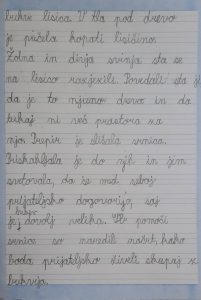 bukve lisica. V tla pod drevo
je začela kopati lisičino.
Žolna in divja svinja sta se
na lisico razjezili. Povedali sta ji
da je to njuno drevo in da
tukaj ni več prostora za
njo. Prepir je slišala srnica.
Priskakljala je do njih in jim
svetovala, da se med seboj
prijateljsko dogovorijo, saj
je bukev dovolj velika. Ob pomoči
srnice so naredili načrt, kako
bodo prijateljsko živeli skupaj z
bukvijo.